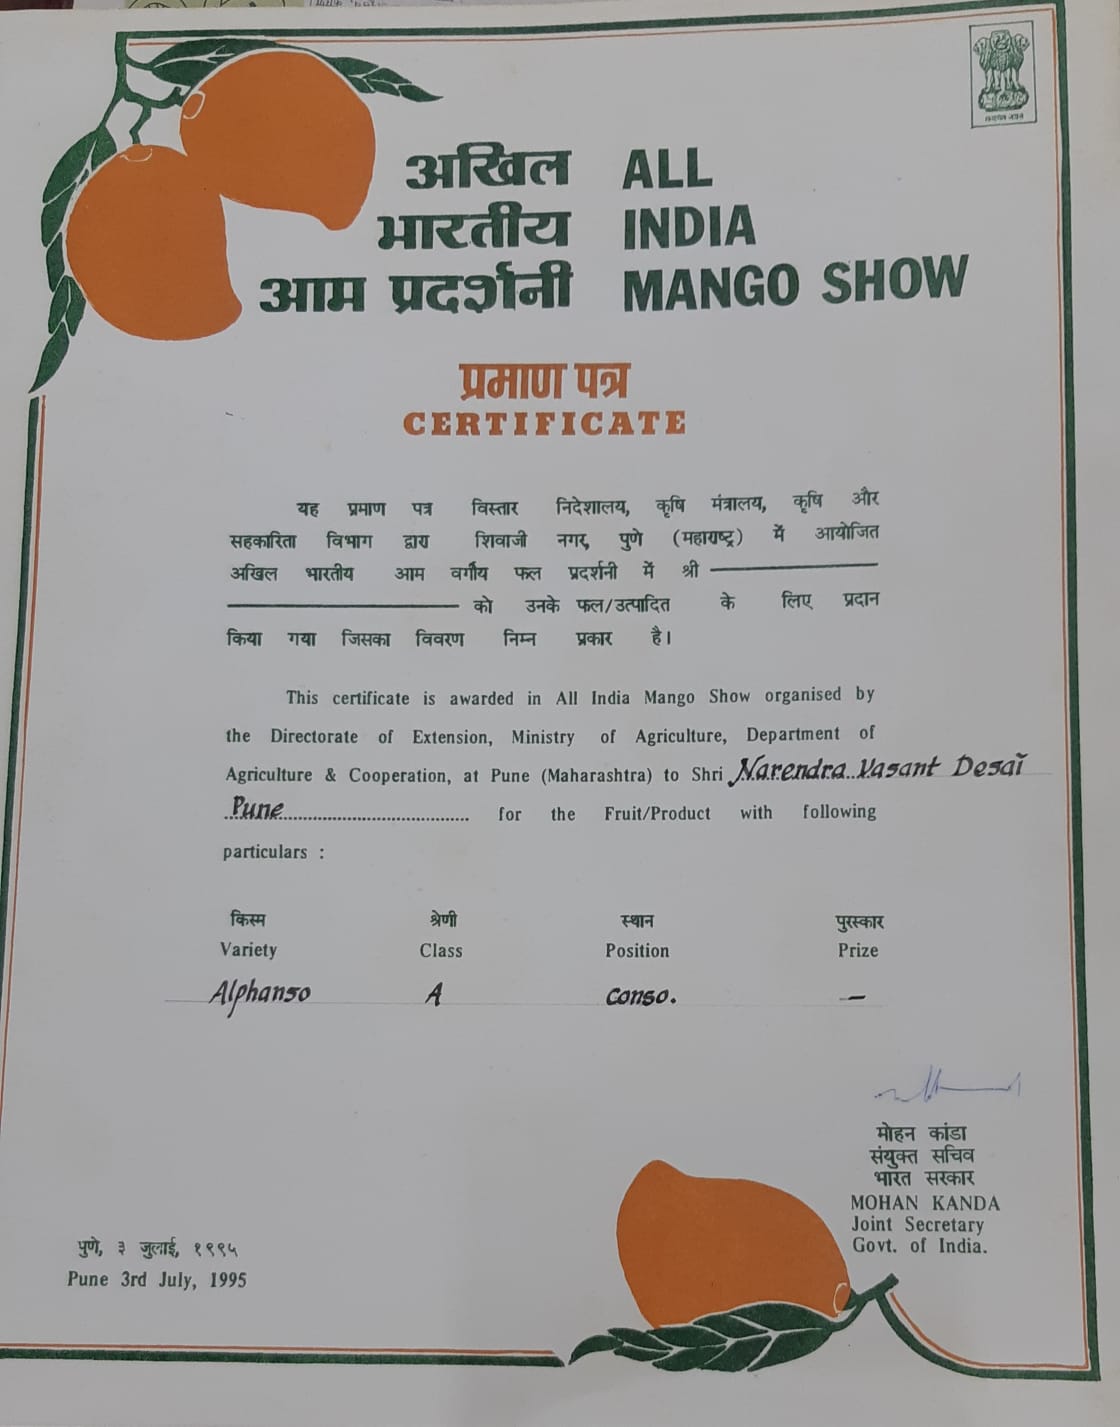 सत्यमेव जयते
अखिल ALL
भारतीय INDIA
आम प्रदर्शनी MANGO SHOW
प्रमाण पत्र
CERTIFICATE
यह प्रमाण पत्र विस्तार निदेशालय, कृषि मंत्रालय, कृषि और
सहकारिता विभाग द्वारा शिवाजी नगर, पुणे (महाराष्ट्र) में आयोजित
अखिल भारतीय आम वर्गीय फल प्रदर्शनी में श्री
को उनके फल/उत्पादित के लिए प्रदान
किया गया जिसका विवरण निम्न प्रकार है।
This certificate is awarded in All India Mango Show organised by
the Directorate of Extension, Ministry of Agriculture, Department of
Agriculture & Cooperation, at Pune (Maharashtra) to Shri Narendra Vasant Desai
Pune for the Fruit/Product with following
particulars :
किस्म श्रेणी स्थान पुरस्कार
Variety Class Position Prize
Alphanso A Conso. —
मोहन कांडा
संयुक्त सचिव
भारत सरकार
MOHAN KANDA
Joint Secretary
Govt. of India.
पुणे, ३ जुलाई, १९९५
Pune 3rd July, 1995